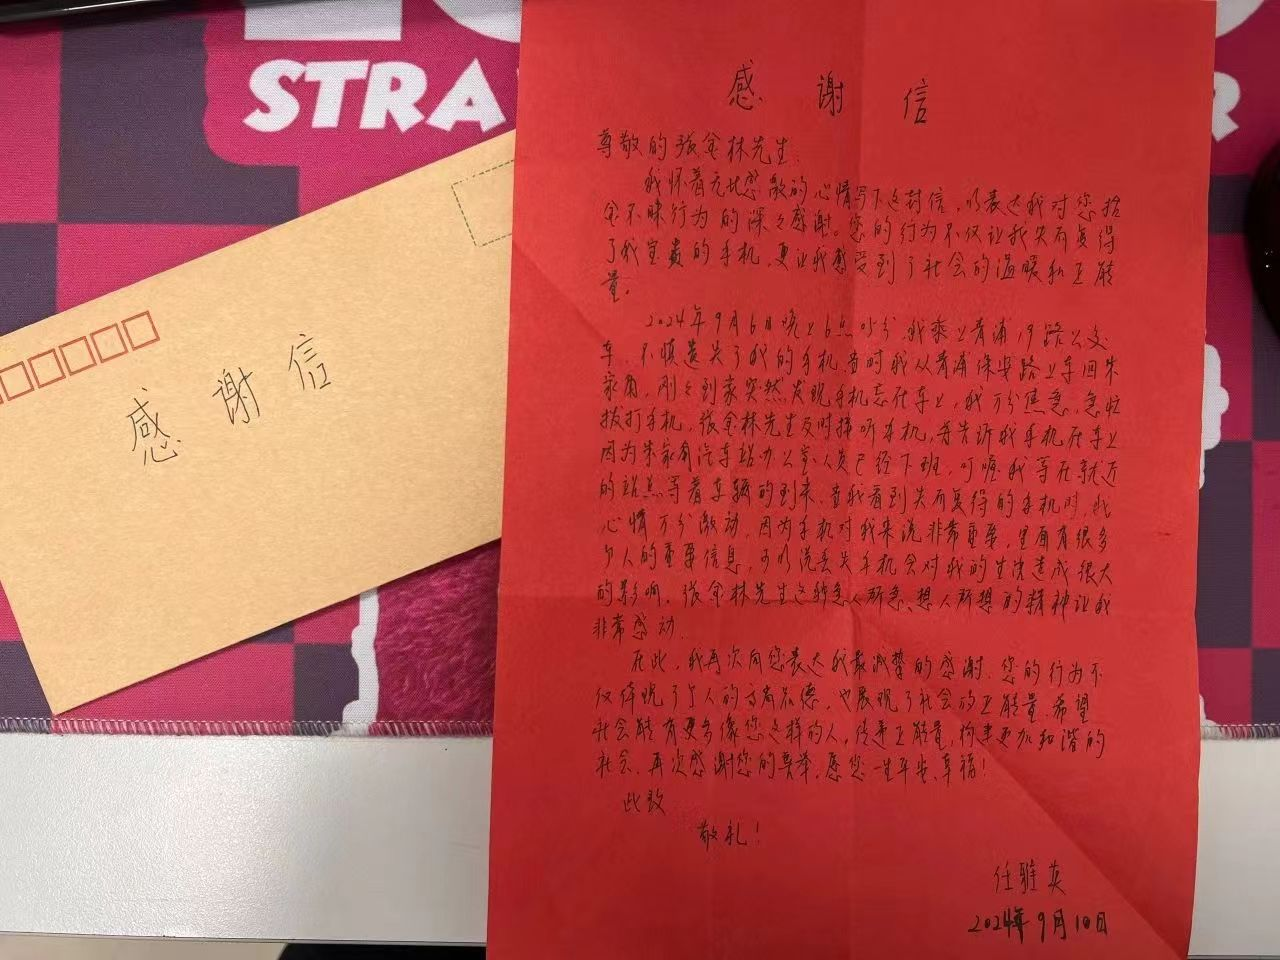 STRA
R
感谢信
感谢信
尊敬的张金林先生:
我怀着无比感激的心情写下这封信，以表达我对您拾
金不昧行为的深深感谢。您的行为不仅让我失而复得
了我宝贵的手机，更让我感受到了社会的温暖和正能
量。
2024年9月6日晚上6点05分，我乘上青浦19路公交
车，不慎遗失了我的手机，当时我从青浦保安路上车回朱
家角，刚刚到家突然发现手机忘在车上，我万分焦急，急忙
拨打手机，张金林先生及时接听手机，并告诉我手机在车上
因为朱家角汽车站办公室人员已经下班，叮嘱我等在就近
的站点等着车辆的到来，当我看到失而复得的手机时，我
心情万分激动，因为手机对我来说非常重要，里面有很多
个人的重要信息，可以说丢失手机会对我的生活造成很大
的影响，张金林先生这种急人所急、想人所想的精神让我
非常感动.
在此，我再次向您表达我最诚挚的感谢，您的行为不
仅体现了个人的高尚品德，也展现了社会的正能量，希望
社会能有更多像您这样的人，传递正能量，构建更加和谐的
社会，再次感谢您的善举，愿您一生平安、幸福！
此致
敬礼！
任雅英
2024年9月10日